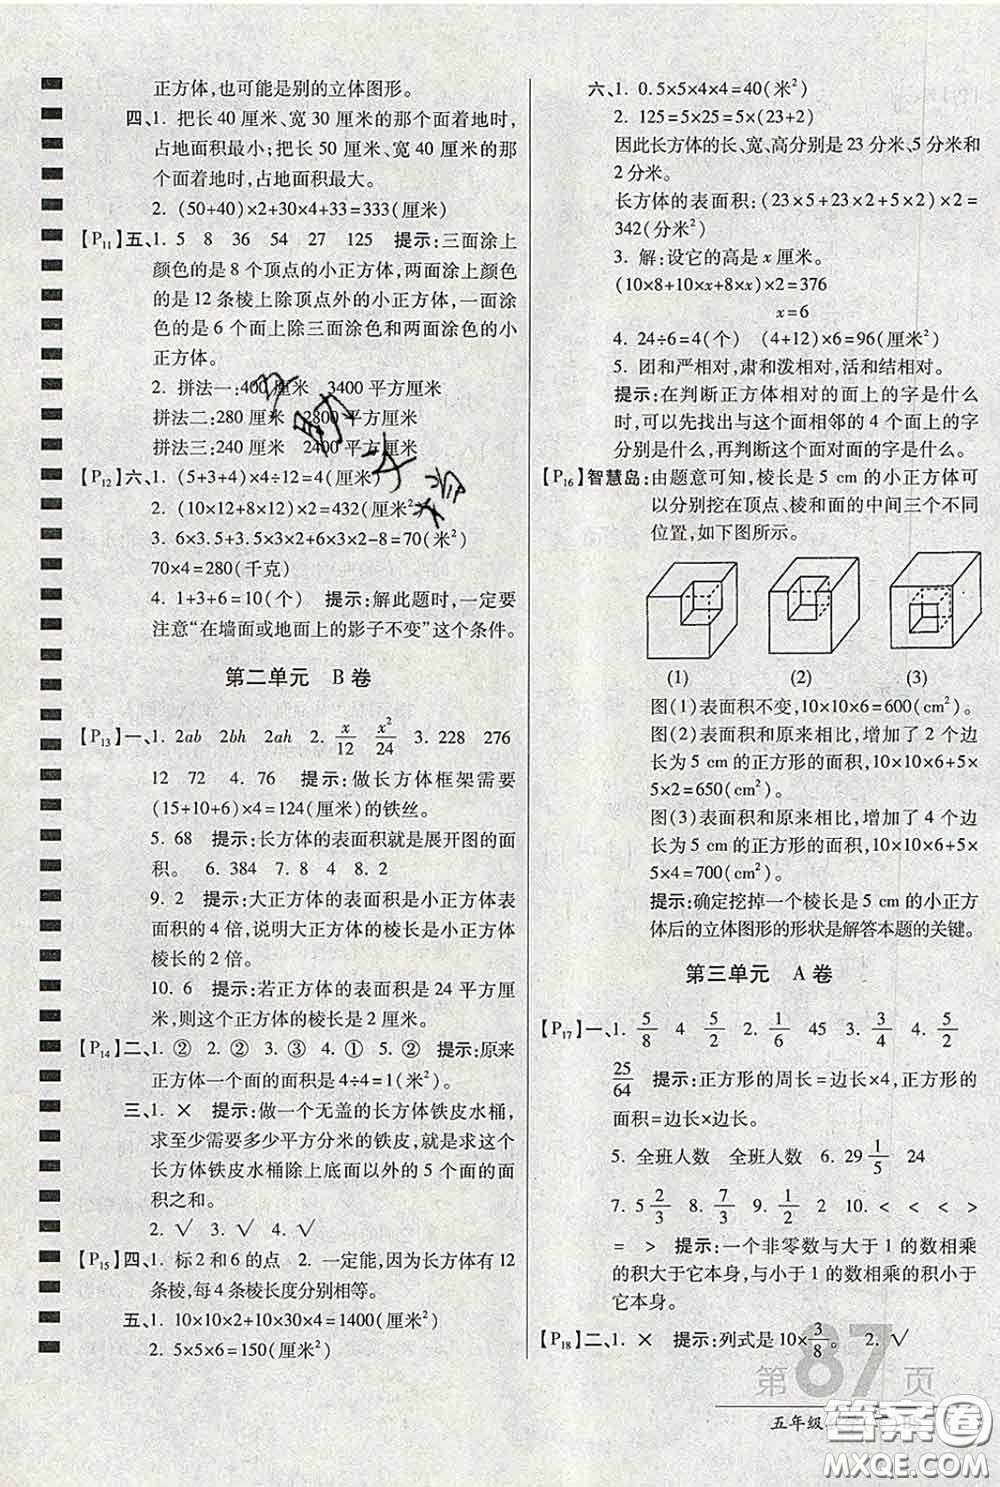 正方体,也可能是别的立体图形。
四、1. 把长 40 厘米、宽 30 厘米的那个面着地时,
占地面积最小;把长 50 厘米、宽 40 厘米的那
个面着地时,占地面积最大。
2. (50+40)×2+30×4+33=333(厘米)
【P11】五、1. 5 8 36 54 27 125 提示:三面涂上
颜色的是 8 个顶点的小正方体,两面涂上颜色
的是 12 条棱上除顶点外的小正方体,一面涂
色的是 6 个面上除三面涂色和两面涂色的小
正方体。
2. 拼法一:400 厘米 3400 平方厘米
拼法二:280 厘米 2800 平方厘米
拼法三:240 厘米 2400 平方厘米
【P12】六、1. (5+3+4)×4÷12=4(厘米)
2. (10×12+8×12)×2=432(厘米²)
3. 6×3.5+3.5×3×2+6×3×2-8=70(米²)
70×4=280(千克)
4. 1+3+6=10(个) 提示:解此题时,一定要
注意“在墙面或地面上的影子不变”这个条件。
第二单元 B 卷
【P13】一、1. 2ab 2bh 2ah 2. x/12 x²/24 3. 228 276
12 72 4. 76 提示:做长方体框架需要
(15+10+6)×4=124(厘米)的铁丝。
5. 68 提示:长方体的表面积就是展开图的面
积。 6. 384 7. 8 4 8. 2
9. 2 提示:大正方体的表面积是小正方体表
面积的 4 倍,说明大正方体的棱长是小正方体
棱长的 2 倍。
10. 6 提示:若正方体的表面积是 24 平方厘
米,则这个正方体的棱长是 2 厘米。
【P14】二、1. ② 2. ② 3. ③ 4. ① 5. ② 提示:原来
正方体一个面的面积是 4÷4=1(米²)。
三、1. × 提示:做一个无盖的长方体铁皮水桶,
求至少需要多少平方分米的铁皮,就是求这个
长方体铁皮水桶除上底面以外的 5 个面的面
积之和。
2. √ 3. √ 4. √
【P15】四、1. 标 2 和 6 的点 2. 一定能,因为长方体有 12
条棱,每 4 条棱长度分别相等。
五、1. 10×10×2+10×30×4=1400(厘米²)
2. 5×5×6=150(厘米²)
六、1. 0.5×5×4×4=40(米²)
2. 125=5×25=5×(23+2)
因此长方体的长、宽、高分别是 23 分米、5 分米和
2 分米。
长方体的表面积:(23×5+23×2+5×2)×2=
342(分米²)
3. 解:设它的高是 x 厘米。
(10×8+10×x+8×x)×2=376
x=6
4. 24÷6=4(个) (4+12)×6=96(厘米²)
5. 团和严相对,肃和泼相对,活和结相对。
提示:在判断正方体相对的面上的字是什么
时,可以先找出与这个面相邻的 4 个面上的字
分别是什么,再判断这个面对面的字是什么。
【P16】智慧岛:由题意可知,棱长是 5 cm 的小正方体可
以分别挖在顶点、棱和面的中间三个不同
位置,如下图所示。
(1) (2) (3)
图(1)表面积不变,10×10×6=600(cm²)。
图(2)表面积和原来相比,增加了 2 个边
长为 5 cm 的正方形的面积,10×10×6+5×
5×2=650(cm²)。
图(3)表面积和原来相比,增加了 4 个边
长为 5 cm 的正方形的面积,10×10×6+5×
5×4=700(cm²)。
提示:确定挖掉一个棱长是 5 cm 的小正方
体后的立体图形的形状是解答本题的关键。
第三单元 A 卷
【P17】一、1. 5/8 4 5/2 2. 1/6 45 3. 3/4 4. 5/2
25/64 提示:正方形的周长=边长×4,正方形的
面积=边长×边长。
5. 全班人数 全班人数 6. 29 1/5 24
7. 5 2/3 8. 7/3 9. 1/2 2 10. < < < >
= > 提示:一个非零数与大于 1 的数相乘
的积大于它本身,与小于 1 的数相乘的积小于
它本身。
【P18】二、1. × 提示:列式是 10×3/8。 2. √
第87页
五年级
答案圈
MXQE.COM